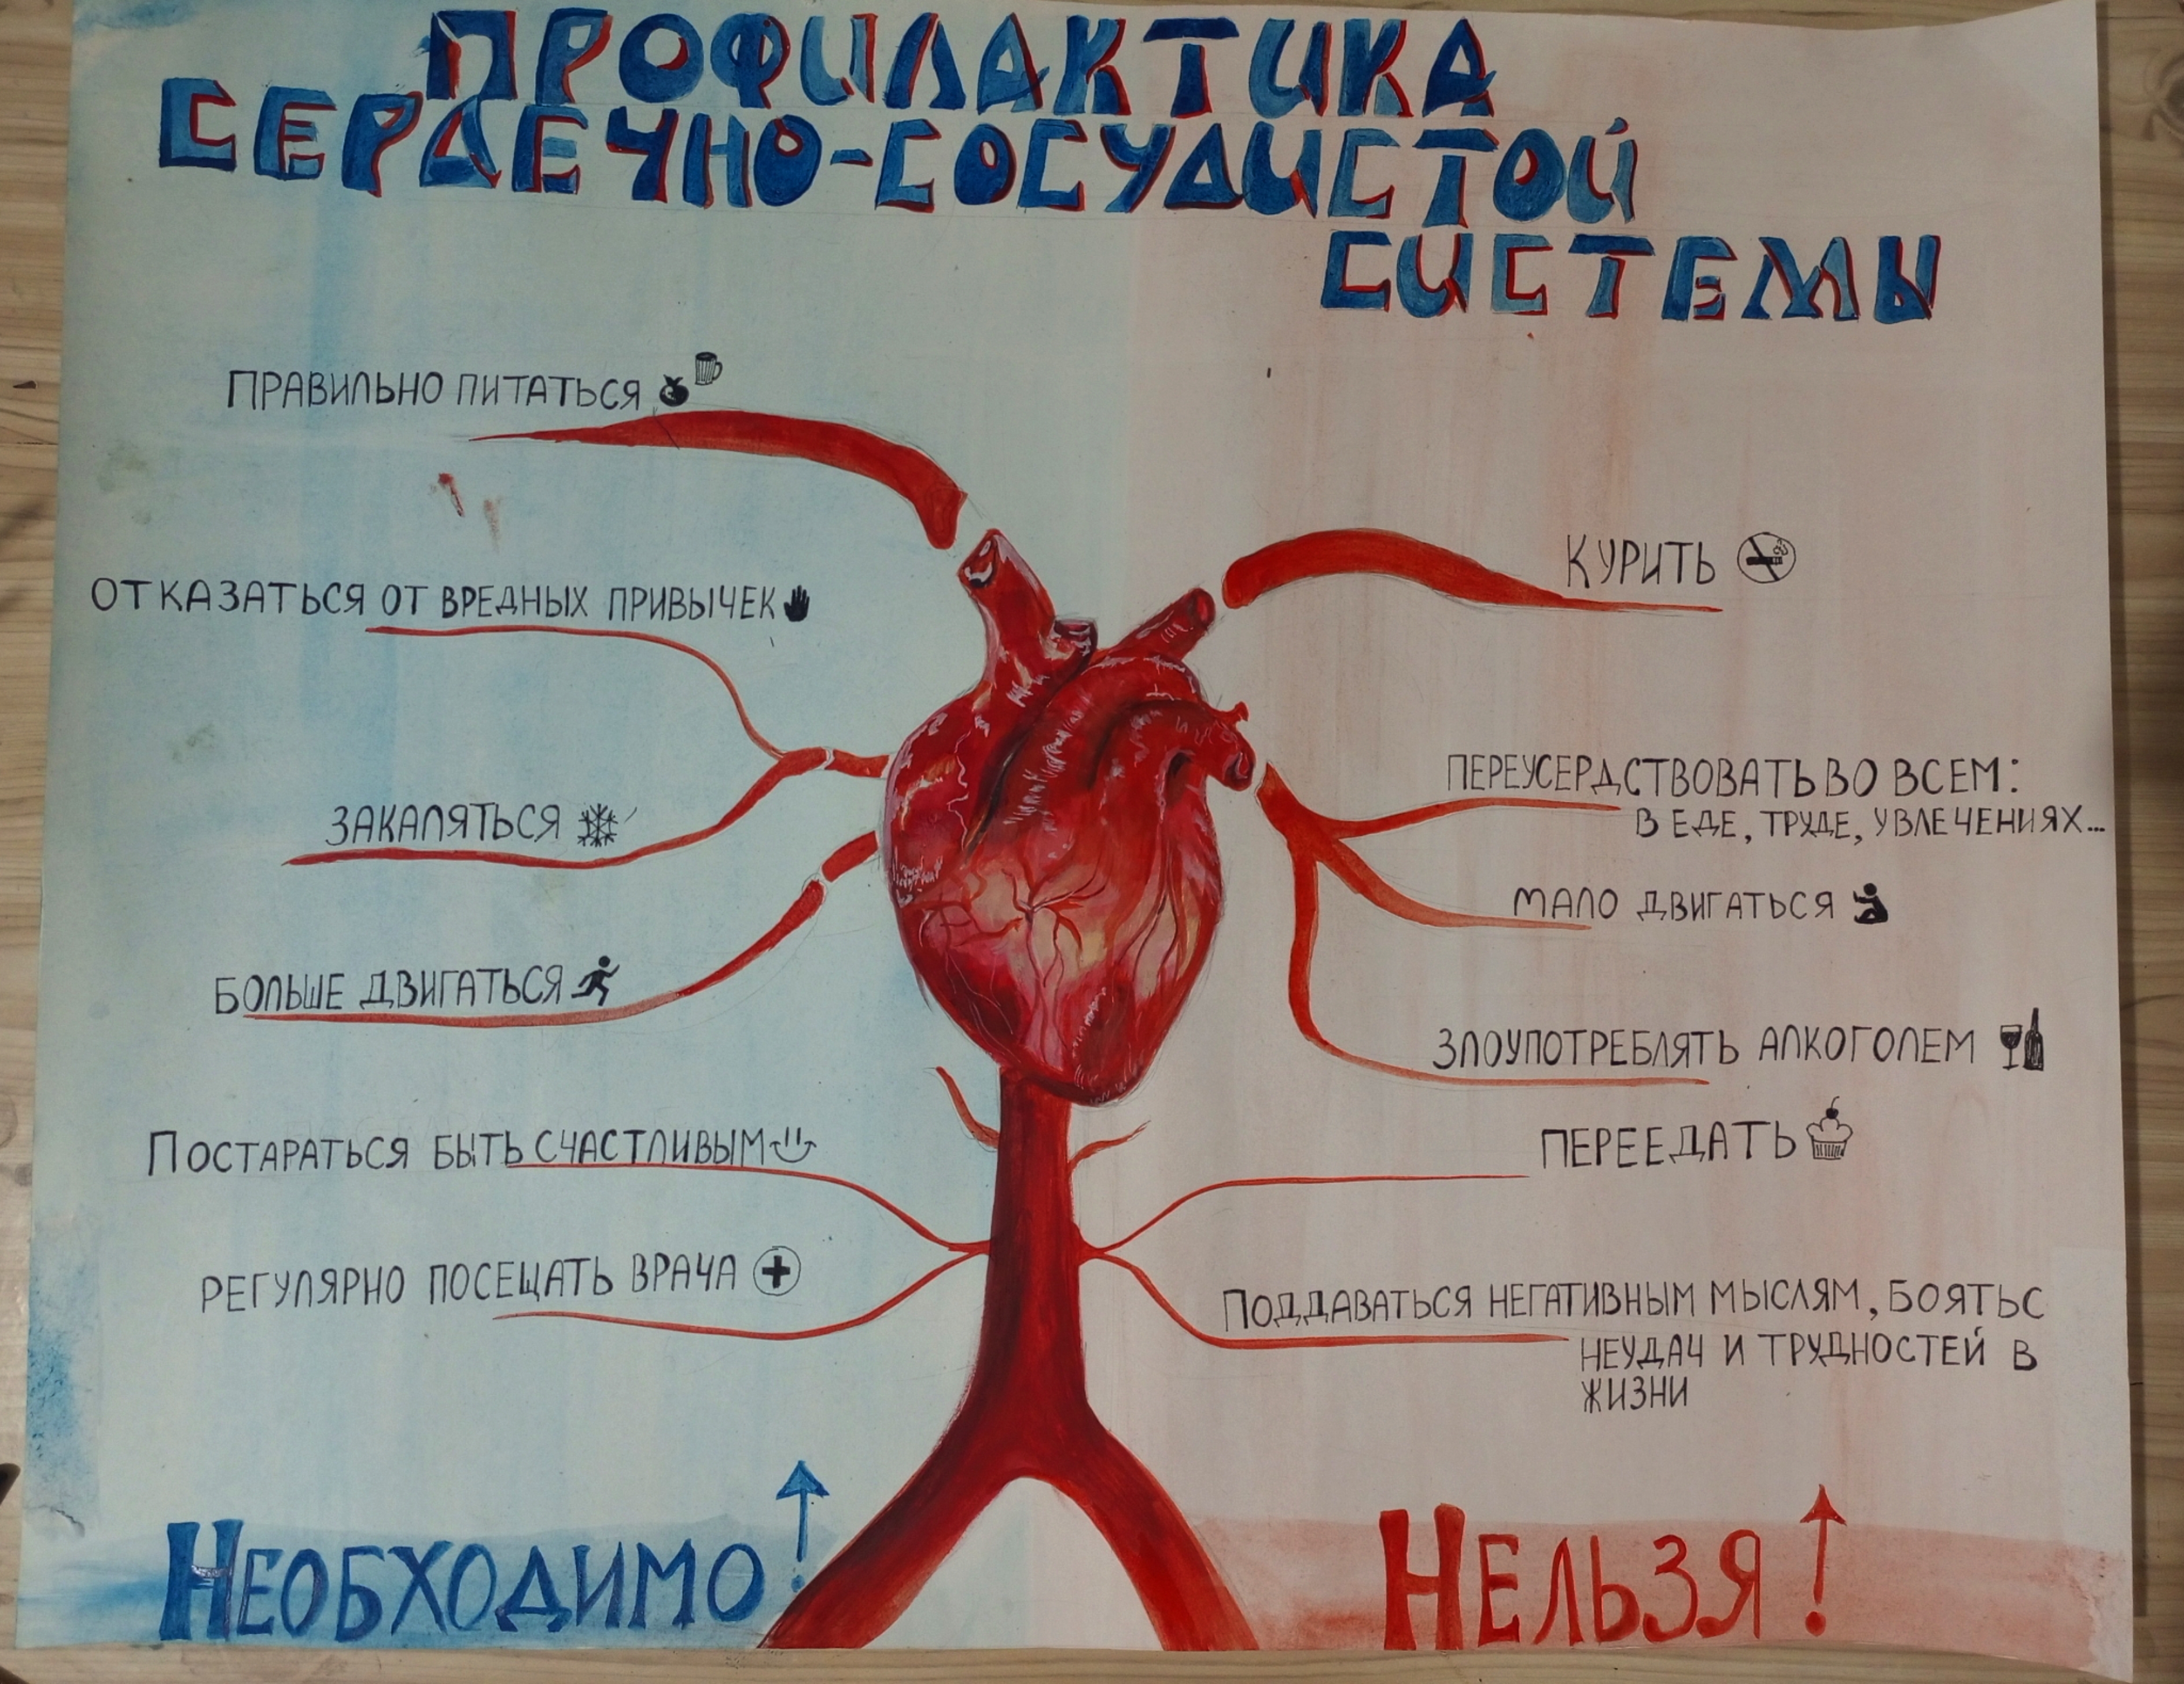 ПРОФИЛАКТИКА
СЕРДЕЧНО-СОСУДИСТОЙ
СИСТЕМЫ
ПРАВИЛЬНО ПИТАТЬСЯ
ОТКАЗАТЬСЯ ОТ ВРЕДНЫХ ПРИВЫЧЕК
ЗАКАЛЯТЬСЯ
БОЛЬШЕ ДВИГАТЬСЯ
ПОСТАРАТЬСЯ БЫТЬ СЧАСТЛИВЫМ
РЕГУЛЯРНО ПОСЕЩАТЬ ВРАЧА
НЕОБХОДИМО!
КУРИТЬ
ПЕРЕУСЕРДСТВОВАТЬ ВО ВСЕМ:
В ЕДЕ, ТРУДЕ, УВЛЕЧЕНИЯХ...
МАЛО ДВИГАТЬСЯ
ЗЛОУПОТРЕБЛЯТЬ АЛКОГОЛЕМ
ПЕРЕЕДАТЬ
ПОДДАВАТЬСЯ НЕГАТИВНЫМ МЫСЛЯМ, БОЯТЬС
НЕУДАЧ И ТРУДНОСТЕЙ В
ЖИЗНИ
НЕЛЬЗЯ!